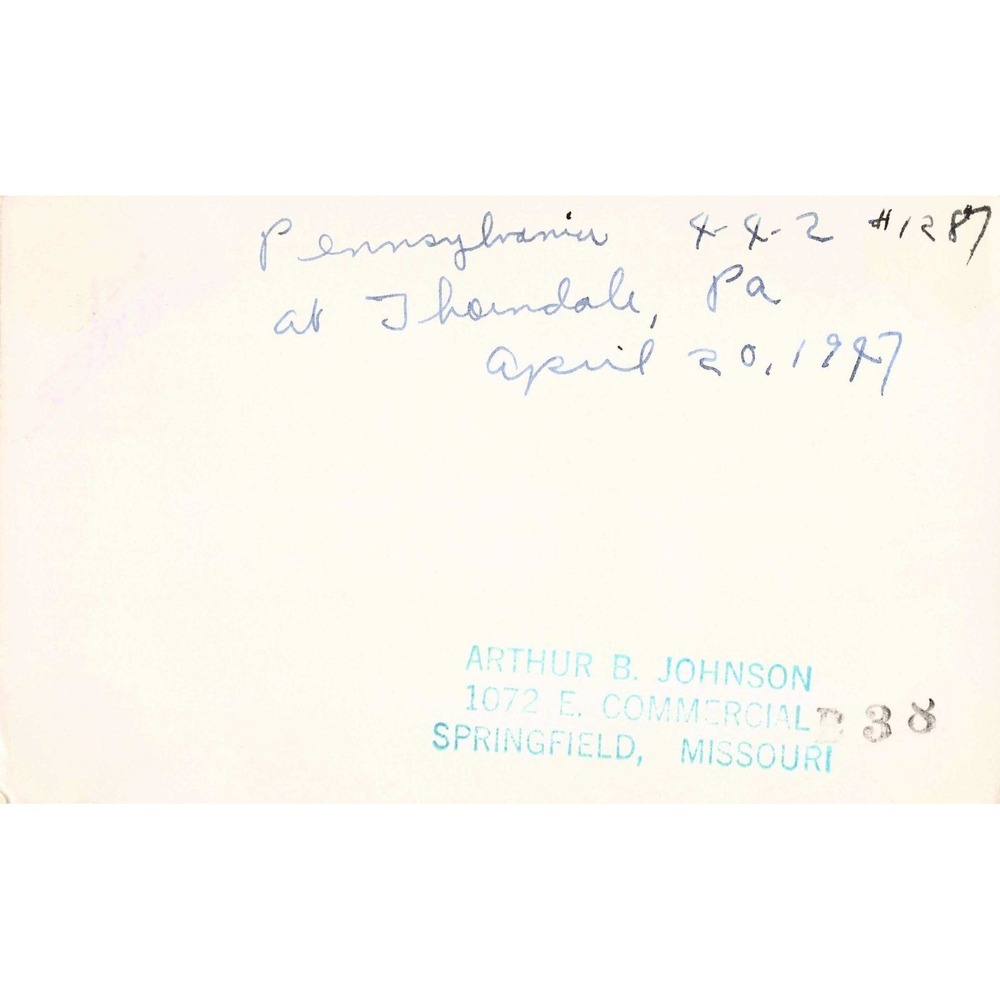 Pennsylvania 4-4-2 #1287
at Thorndale, Pa
April 20, 1947
ARTHUR B. JOHNSON
1072 E. COMMERCIAL
SPRINGFIELD, MISSOURI
38